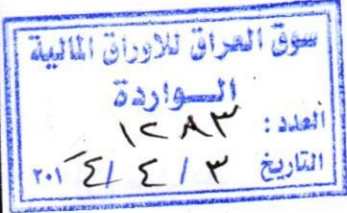 سوق العراق للاوراق المالية
الـــواردة
العدد : ١٢٨٣
التاريخ ٣ / ٤ / ٢٠١٤